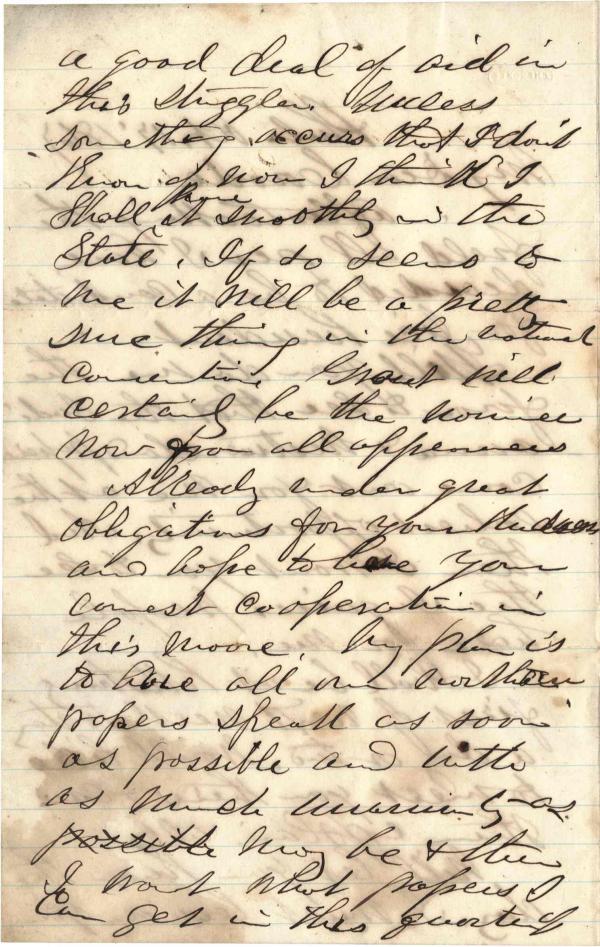 a good deal of aid in
this struggle. Unless
something occurs that I don't
Know of now I think I
Shall have it smoothly in the
State. If so seems to
me it will be a pretty
sure thing in the national
convention. Grant will
certainly be the nominee
now from all appearances
Already under great
obligations for your kindness
and hope to have your
earnest cooperation in
this move. My plan is
to have all our northern
papers speak as soon
as possible and with
as much unanimity as
possible may be & then
I want what papers I
Can get in this quarter of